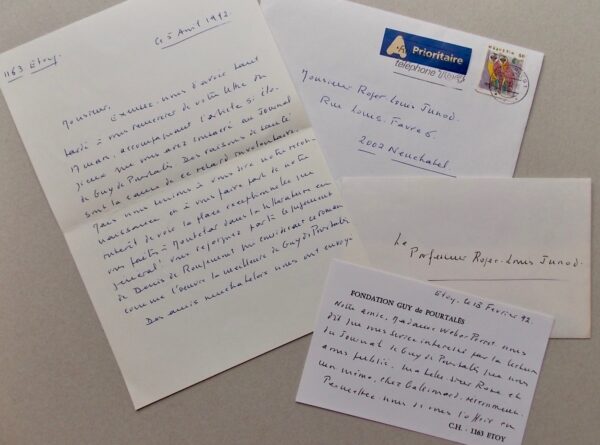 1163 Etoy.
le 5 Avril 1992
Monsieur,
Excusez-nous d'avoir tant
tardé à vous remercier de votre lettre du
17 mars, accompagnant l'article si élo-
gieux que vous avez consacré au Journal
de Guy de Pourtalès. Des raisons de santé
sont la cause de ce retard involontaire.
Mais nous tenions à vous dire notre recon-
naissance et à vous faire part de notre
intérêt de voir la place exceptionnelle que
vous faites à Montclar dans la littérature en
général. Vous rejoignez par là le jugement
de Denis de Rougemont qui considérait ce roman
comme l'oeuvre la meilleure de Guy de Pourtalès.
Des amis neuchâtelois nous ont envoyé
A Prioritaire
HELVETIA
Monsieur Roger-Louis Junod.
Rue Louis-Favre 6
2002 Neuchâtel.
Le
Professeur Roger-Louis Junod.
Etoy, le 18 Février 92.
FONDATION GUY de POURTALÈS
Notre amie, Madame Weber-Perret nous
dit que vous seriez intéressé par la lecture
du Journal de Guy de Pourtalès que nous
avons publié, ma belle soeur Rose et
moi même, chez Gallimard, récemment.
Permettez nous de vous l'offrir en
C.H. - 1163 ETOY